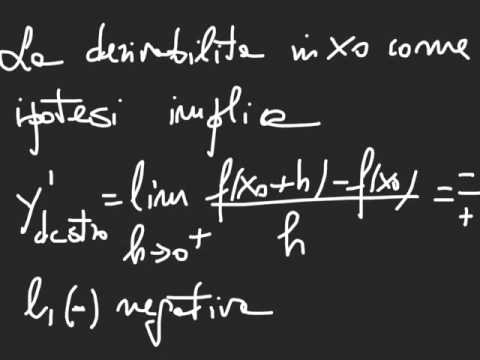 La derivabilita in x0 come
ipotesi implica
y'destro = lim h→0+ f(x0+h)-f(x0)/h = -/+
l1 (-) negativa